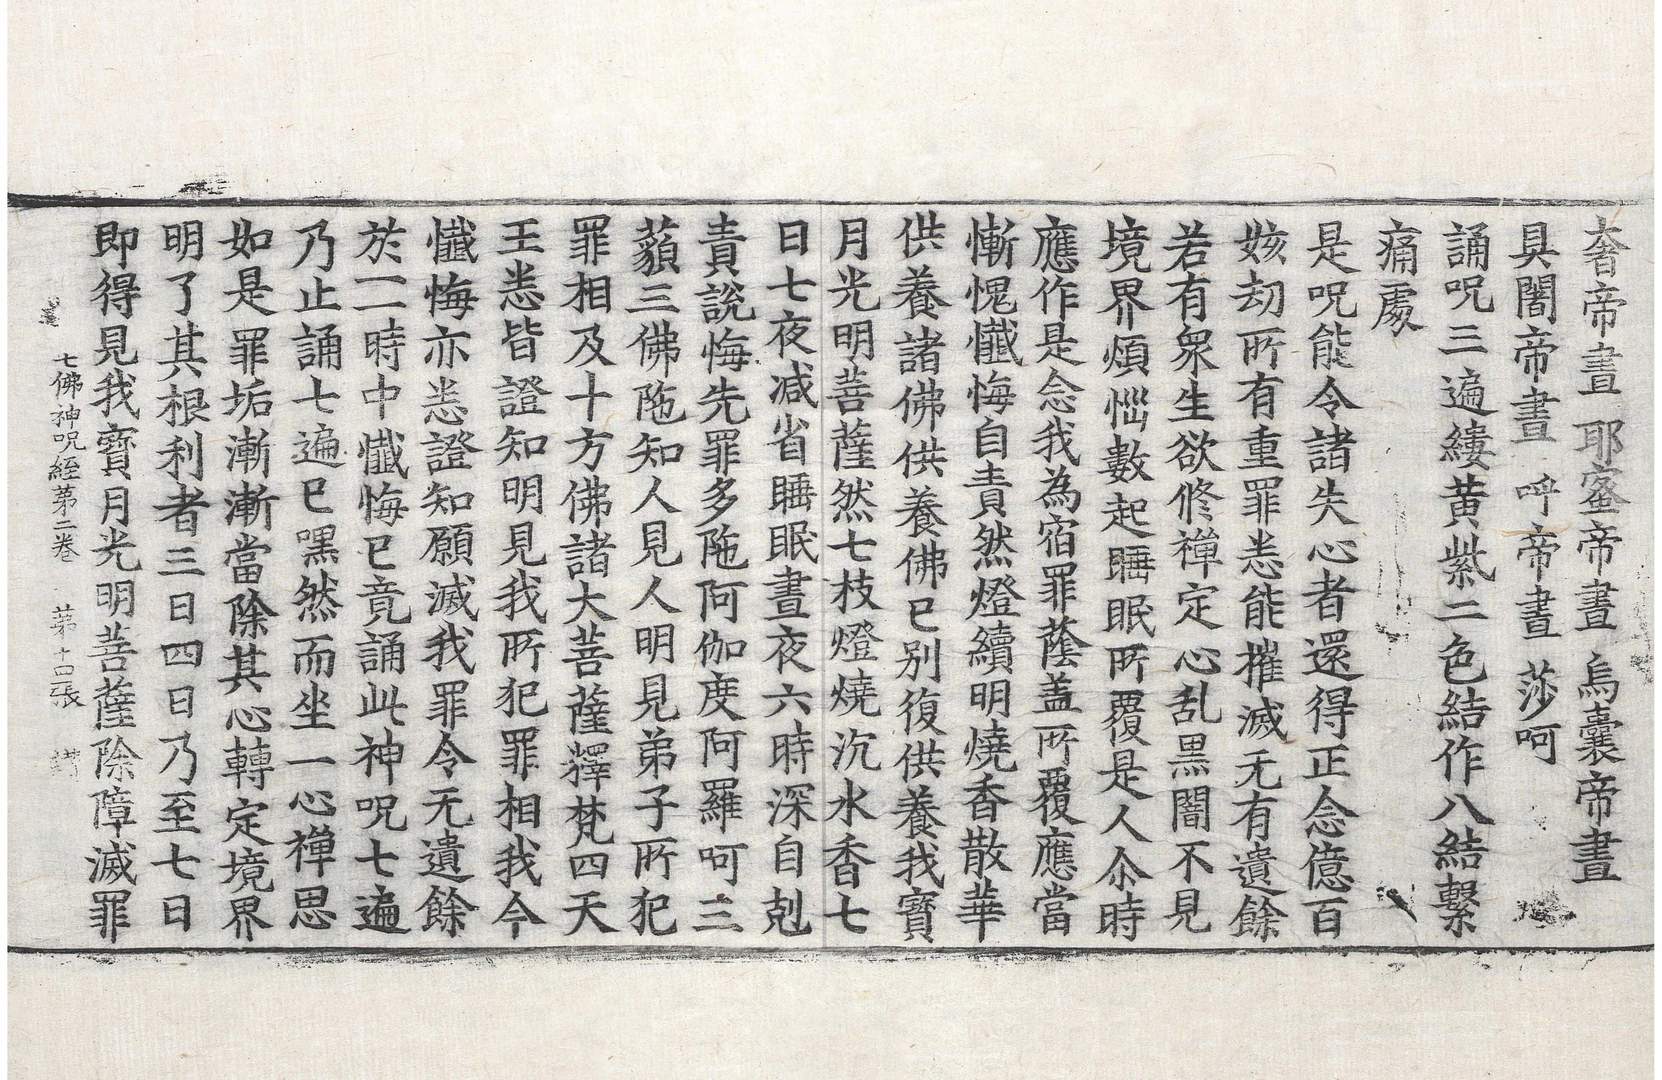 奢帝晝 耶蜜帝晝 烏囊帝晝
具闍帝晝 呼帝晝 莎呵
誦呪三遍縷黄紫二色結作八結繫
痛處
是呪能令諸失心者還得正念億百
姟劫所有重罪悉能摧滅无有遺餘
若有衆生欲修禪定心乱黒闇不見
境界煩惱數起睡眠所覆是人尒時
應作是念我為宿罪蔭盖所覆應當
慚愧懺悔自責然燈續明燒香散華
供養諸佛供養佛已別復供養我寶
月光明菩薩然七枝燈燒沉水香七
日七夜减省睡眠晝夜六時深自剋
責說悔先罪多陁阿伽度阿羅呵三
藐三佛陁知人見人明見弟子所犯
罪相及十方佛諸大菩薩釋梵四天
王悉皆證知明見我所犯罪相我今
懺悔亦悉證知願滅我罪令无遺餘
於一時中懺悔已竟誦此神呪七遍
乃止誦七遍已嘿然而坐一心禪思
如是罪垢漸漸當除其心轉定境界
明了其根利者三日四日乃至七日
即得見我寳月光明菩薩除障滅罪
七佛神呪經苐二卷 苐十四張